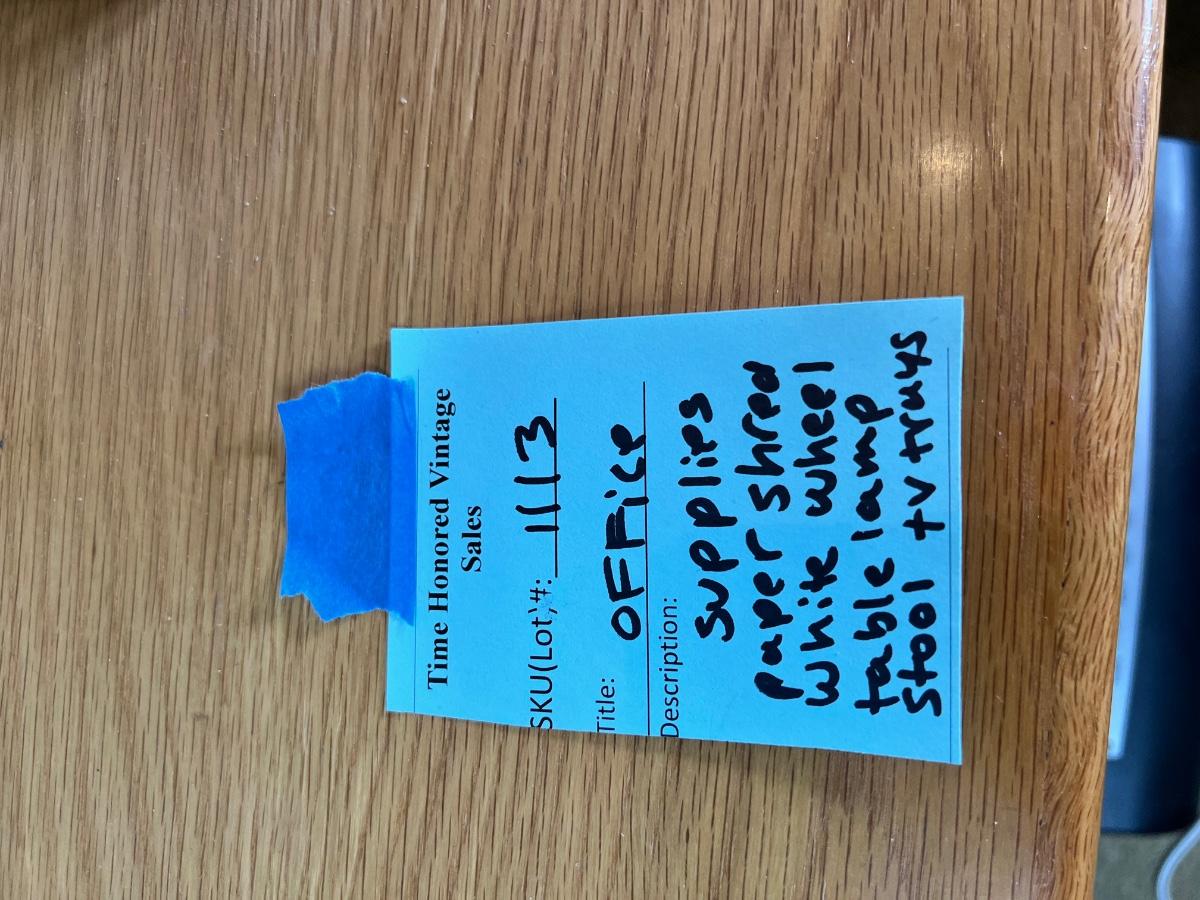 Time Honored Vintage
Sales
SKU(Lot)#: 1113
Title: OFFice
Description:
supplies
paper shred
white wheel
table lamp
stool tv trays